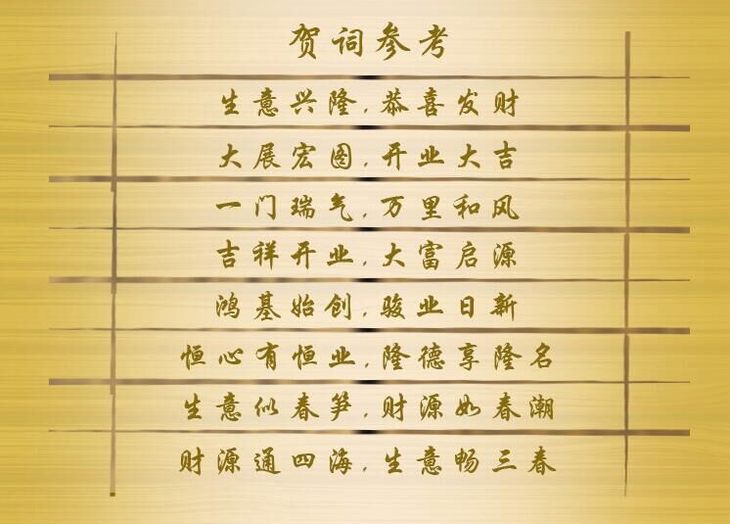 贺词参考
生意兴隆,恭喜发财
大展宏图,开业大吉
一门瑞气,万里和风
吉祥开业,大富启源
鸿基始创,骏业日新
恒心有恒业,隆德享隆名
生意似春笋,财源如春潮
财源通四海,生意畅三春